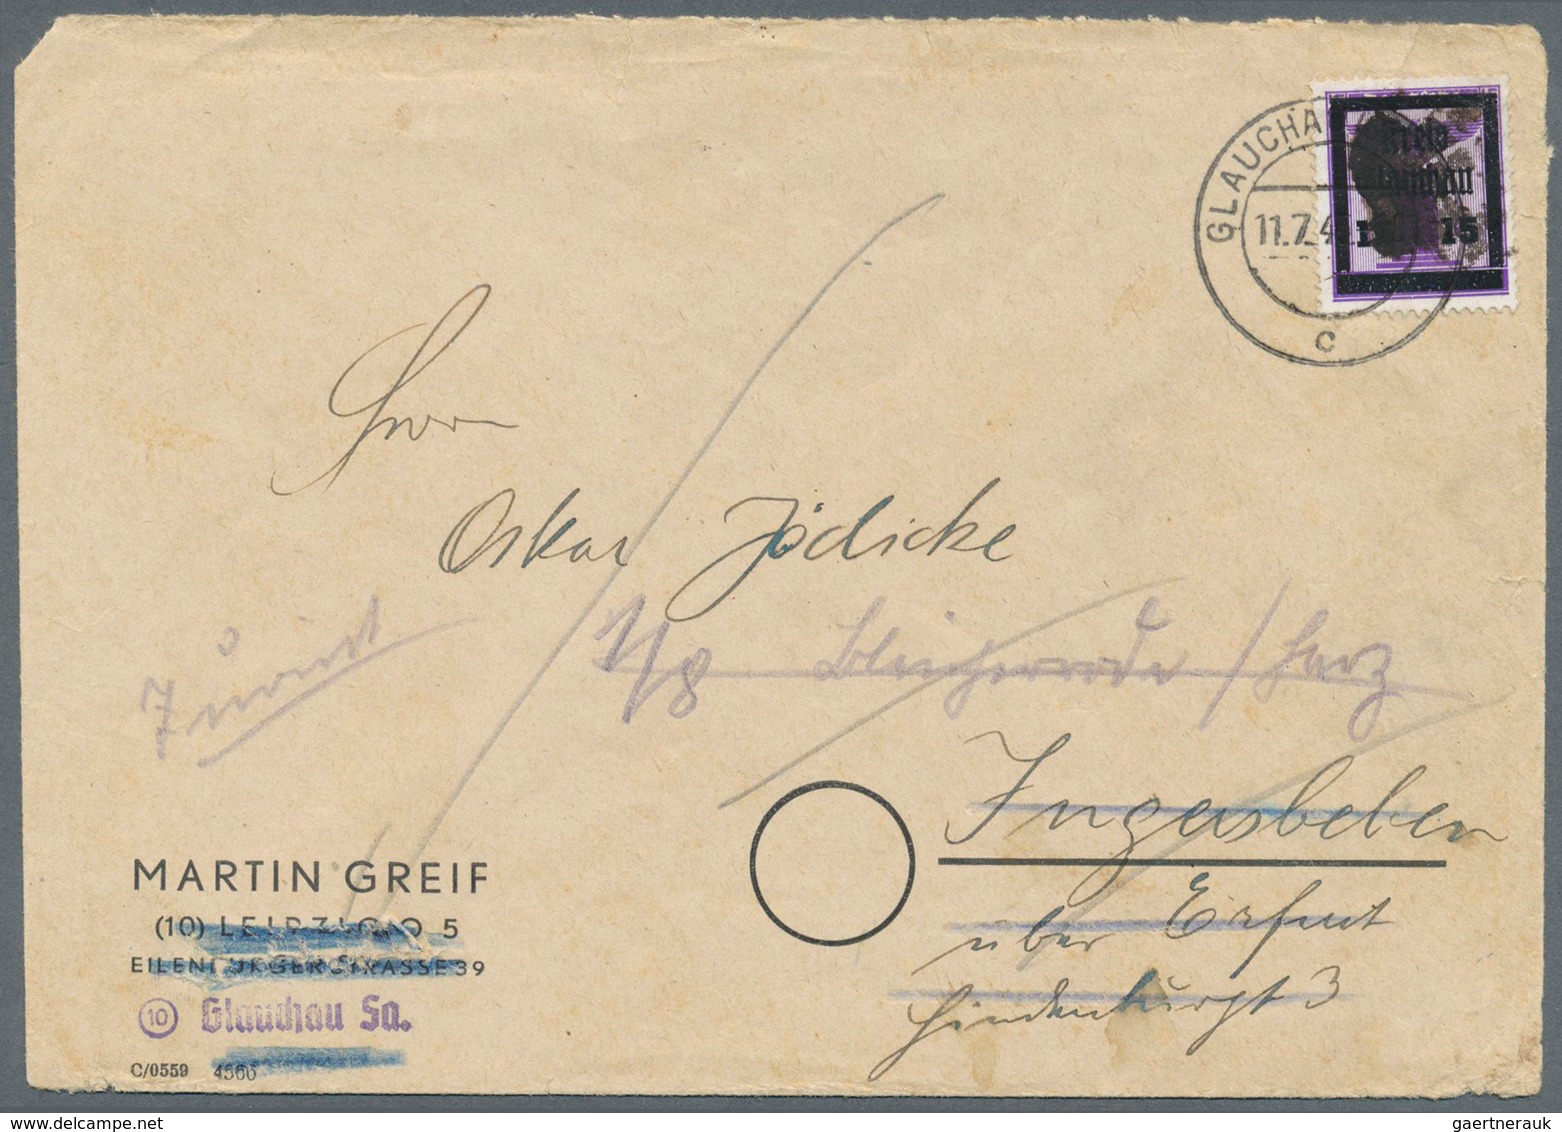 GLAUCHA
11.7.4
c
Kreis
Glauchau
15
Herrn
Oskar Jödicke
Zurück
Bleicherode / Harz
Ingersleben
über Erfurt
Hindenburgst 3
MARTIN GREIF
(10) LEIPZIG O 5
EILENBURGERSTRASSE 39
10 Glauchau Sa.
C/0559 4566
gaertnerauk